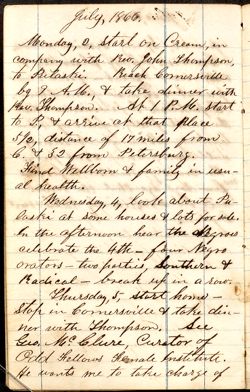 July, 1866.
Monday, 2, start on Cream, in
company with Rev. John Thompson,
to Pulaski. Reach Cornersville
by 9 A.M., & take dinner with
Rev. Thompson. At 1 P.M. start
to P., & arrive at that place
5½, distance of 17 miles from
C. & 32 from Petersburg.
Find Wellborn & family in usu-
al health.
Wednesday, 4, look about Pu-
laski at some houses & lots for sale.
In the afternoon hear the Negroes
celebrate the 4th — four Negro
orators — two parties, Southern &
Radical — break up in a row.
Thursday, 5, start home —
Stop in Cornersville & take din-
ner with Thompson. See
Geo. McClure, Curator of
Odd Fellows Female Institute.
He wants me to take charge of